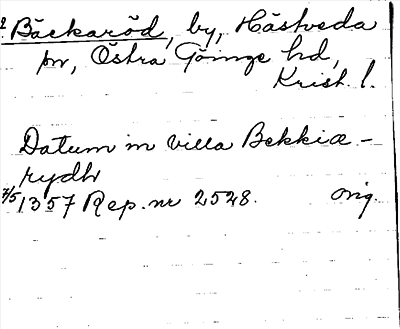 2 Bäckaröd, by, Hästveda
sn, Östra Göinge hd,
Krist. l.
Datum in villa Bekkia-
rydh
7/5 1357 Rep. nr 2528. orig.